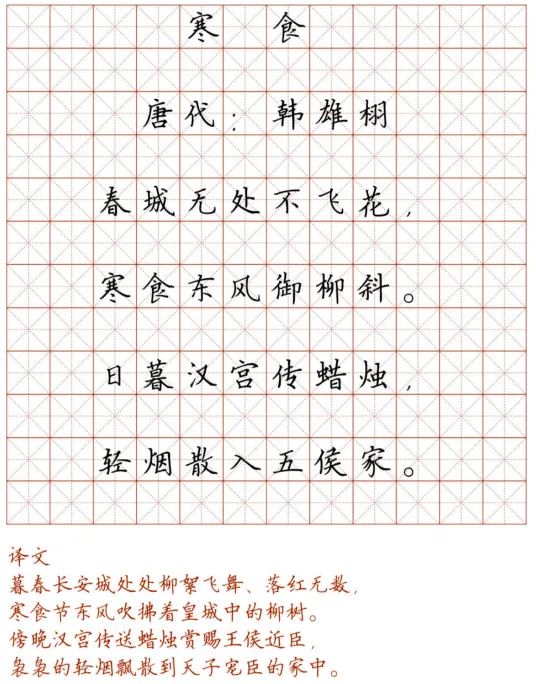 寒食
唐代：韩雄栩
春城无处不飞花，
寒食东风御柳斜。
日暮汉宫传蜡烛，
轻烟散入五侯家。
译文
暮春长安城处处柳絮飞舞、落红无数，
寒食节东风吹拂着皇城中的柳树。
傍晚汉宫传送蜡烛赏赐王侯近臣，
袅袅的轻烟飘散到天子宠臣的家中。